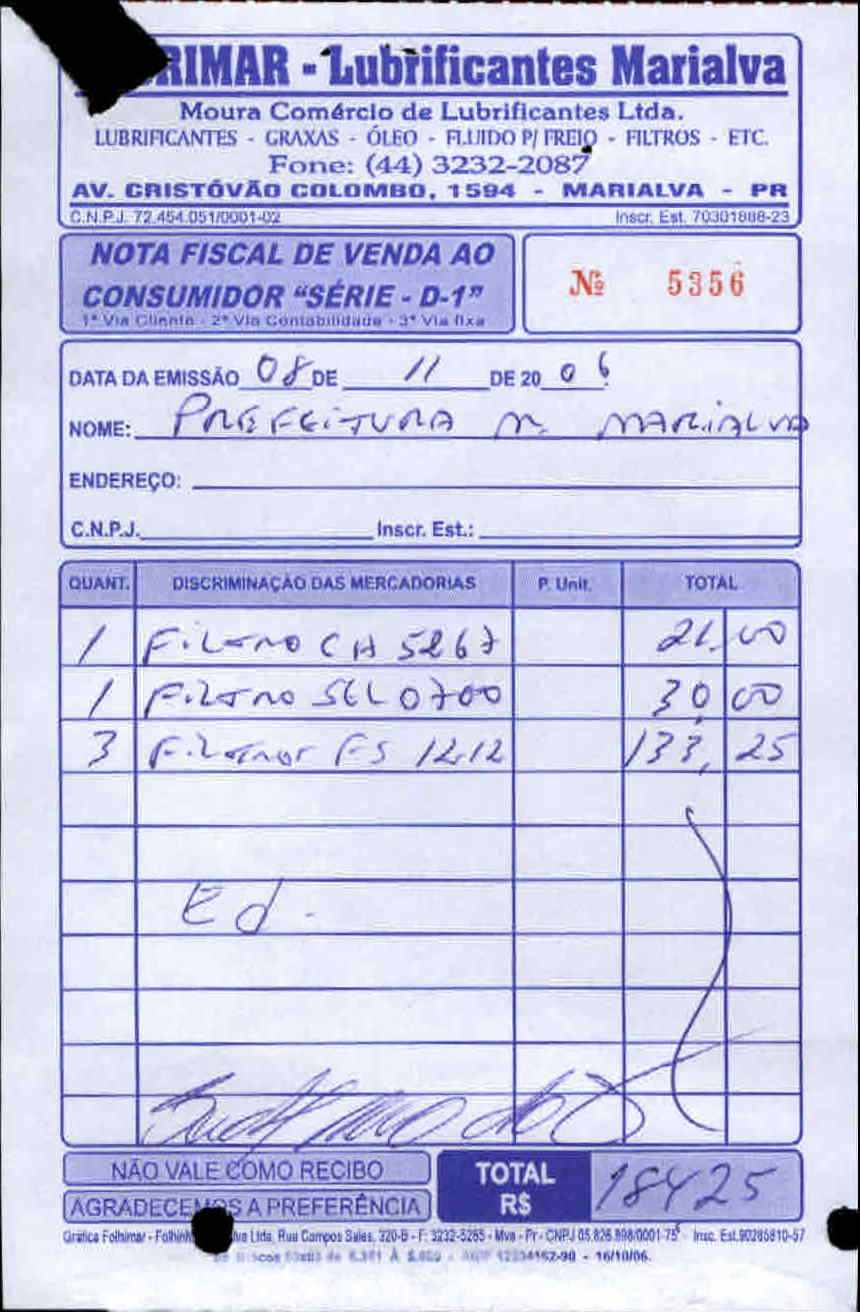 RIMAR - Lubrificantes Marialva
Moura Comércio de Lubrificantes Ltda.
LUBRIFICANTES - GRAXAS - ÓLEO - FLUIDO P/ FREIO - FILTROS - ETC.
Fone: (44) 3232-2087
AV. CRISTÓVÃO COLOMBO, 1594 - MARIALVA - PR
C.N.P.J. 72.454.051/0001-02 Inscr. Est. 70301888-23
NOTA FISCAL DE VENDA AO
CONSUMIDOR "SÉRIE - D-1"
1ª Via Cliente - 2ª Via Contabilidade - 3ª Via fixa
Nº 5356
DATA DA EMISSÃO 08 DE 11 DE 20 06
NOME: PREFEITURA M. MARIALVA
ENDEREÇO:
C.N.P.J. Inscr. Est.:
QUANT. DISCRIMINAÇÃO DAS MERCADORIAS P. Unit. TOTAL
1 FILTRO CH 5267 21,00
1 FILTRO SCL 0700 30,00
3 FILTROS FS 1212 133,25
Ed.
NÃO VALE COMO RECIBO
AGRADECEMOS A PREFERÊNCIA
TOTAL
R$
184 25
Gráfica Folhimar - Ltda, Rua Campos Sales, 320-B - F: 3232-5265 - Mva - Pr - CNPJ 05.826.898/0001-75 - Insc. Est.90285810-57
- 16/10/06.